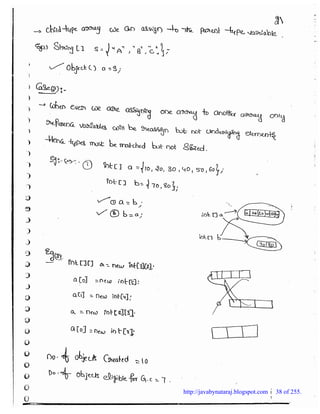 31
→ Child-type array we can assign to the parent-type variable.
Eg:- String[] s = {"A", "B", "C"};
✓ Object[] a = s;
Case(2):-
→ When ever we are assigning one array to another array only
reference variables will be reassign but not underlying elements
Hence types must be matched but not sized.
Eg:- ① int[] a = {10, 20, 30, 40, 50, 60};
int[] b = {70, 80};
✓ ⓐ a = b;
✓ ⓑ b = a;
int[] a
int[] b
Eg:-
int[][] a = new int[3][2];
a[0] = new int[5];
a[1] = new int[4];
a = new int[2][3];
a[0] = new int[3];
no. of objects Created = 10
no. of objects eligible for G.C = 7.
http://javabynataraj.blogspot.com 38 of 255.